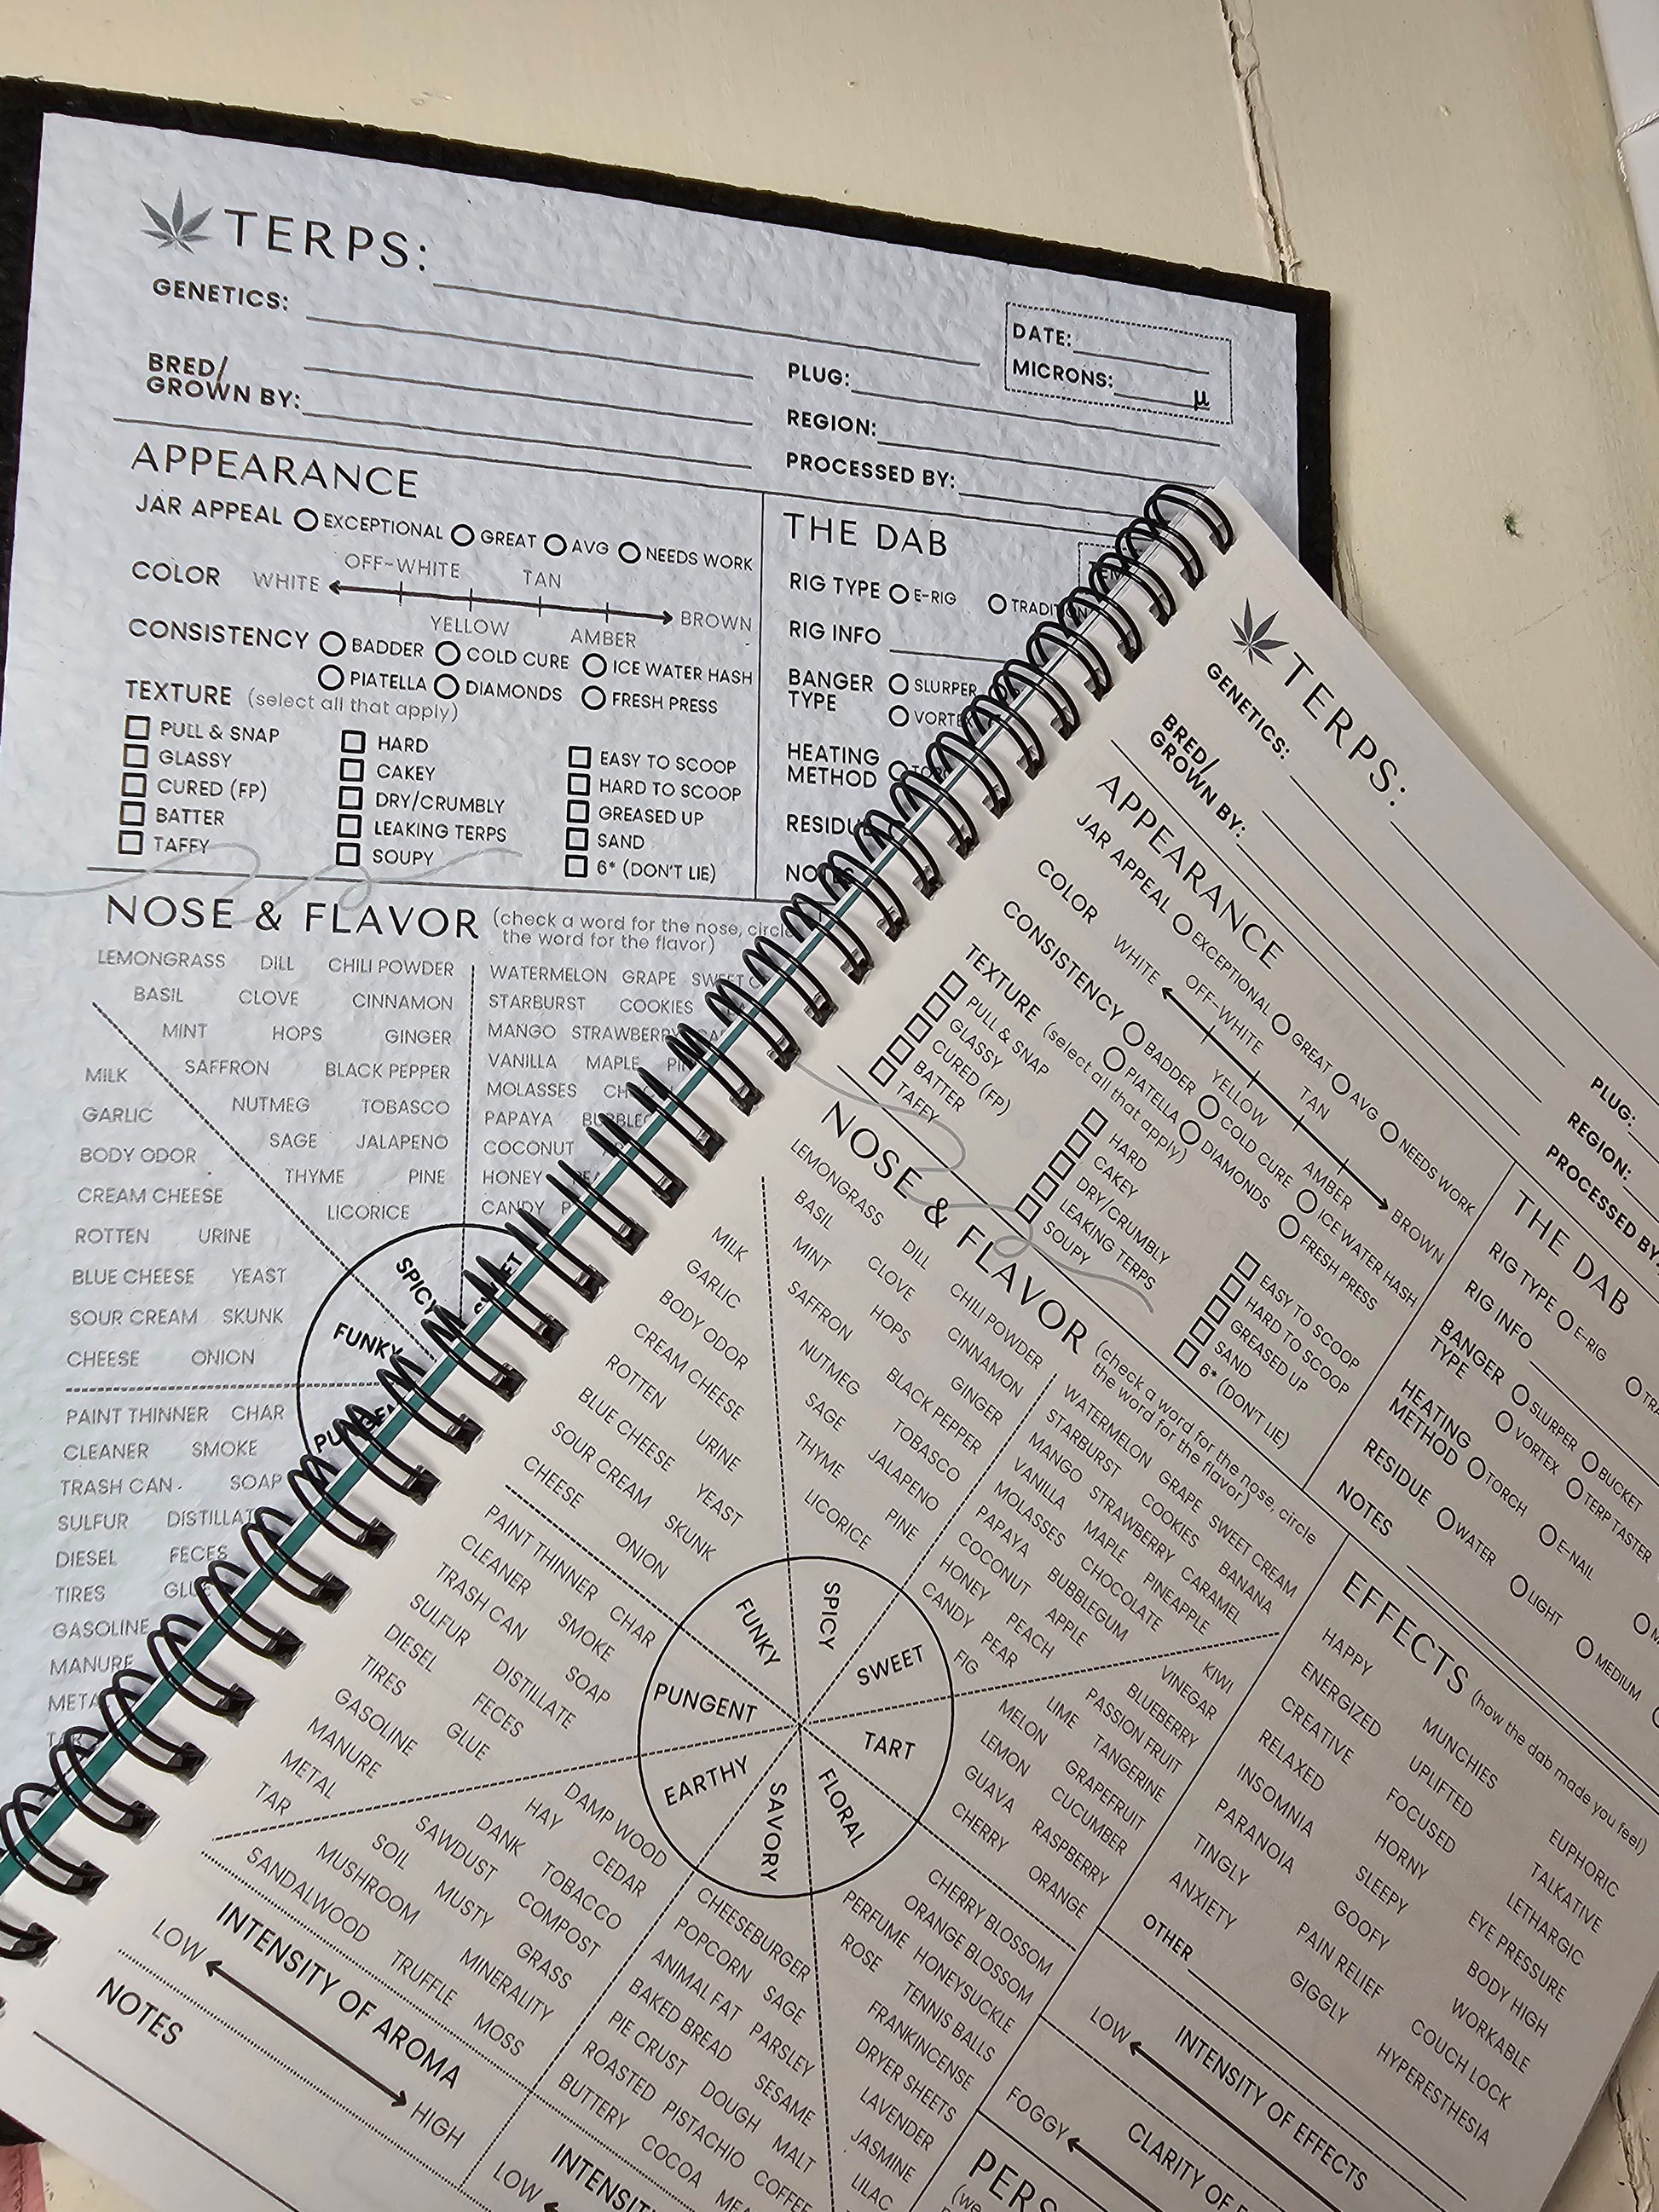 TERPS:
GENETICS:
DATE:
MICRONS: μ
BRED/
GROWN BY:
PLUG:
REGION:
PROCESSED BY:
APPEARANCE
JAR APPEAL EXCEPTIONAL GREAT AVG NEEDS WORK
COLOR WHITE OFF-WHITE YELLOW TAN AMBER BROWN
CONSISTENCY BADDER COLD CURE ICE WATER HASH
PIATELLA DIAMONDS FRESH PRESS
TEXTURE (select all that apply)
PULL & SNAP HARD EASY TO SCOOP
GLASSY CAKEY HARD TO SCOOP
CURED (FP) DRY/CRUMBLY GREASED UP
BATTER LEAKING TERPS SAND
TAFFY SOUPY 6* (DON'T LIE)
THE DAB
RIG TYPE E-RIG
RIG INFO
BANGER
TYPE
SLURPER
HEATING
METHOD
NOSE & FLAVOR (check a word for the nose, circle
the word for the flavor)
LEMONGRASS DILL CHILI POWDER
BASIL CLOVE CINNAMON
MINT HOPS GINGER
SAFFRON BLACK PEPPER
NUTMEG TOBASCO
SAGE JALAPENO
THYME PINE
LICORICE
WATERMELON GRAPE
STARBURST COOKIES
MANGO STRAWBERRY
VANILLA MAPLE
MOLASSES
PAPAYA
COCONUT
HONEY
CANDY
MILK
GARLIC
BODY ODOR
CREAM CHEESE
ROTTEN URINE
BLUE CHEESE YEAST
SOUR CREAM SKUNK
CHEESE ONION
SPICY
FUNKY
PAINT THINNER CHAR
CLEANER SMOKE
TRASH CAN SOAP
SULFUR
DIESEL FECES
TIRES
GASOLINE
MANURE
TERPS:
GENETICS:
BRED/
GROWN BY:
PLUG:
REGION:
PROCESSED BY:
APPEARANCE
JAR APPEAL EXCEPTIONAL GREAT AVG NEEDS WORK
COLOR WHITE OFF-WHITE YELLOW TAN AMBER BROWN
CONSISTENCY BADDER COLD CURE ICE WATER HASH
PIATELLA DIAMONDS FRESH PRESS
TEXTURE (select all that apply)
PULL & SNAP HARD EASY TO SCOOP
GLASSY CAKEY HARD TO SCOOP
CURED (FP) DRY/CRUMBLY GREASED UP
BATTER LEAKING TERPS SAND
TAFFY SOUPY 6* (DON'T LIE)
THE DAB
RIG TYPE E-RIG
RIG INFO
BANGER
TYPE
SLURPER BUCKET
VORTEX TERP TASTER
HEATING
METHOD
TORCH E-NAIL
RESIDUE WATER LIGHT MEDIUM
NOTES
NOSE & FLAVOR (check a word for the nose, circle
the word for the flavor)
LEMONGRASS DILL CHILI POWDER
BASIL CLOVE CINNAMON
MINT HOPS GINGER
SAFFRON BLACK PEPPER
NUTMEG TOBASCO
SAGE JALAPENO
THYME PINE
LICORICE
WATERMELON GRAPE SWEET CREAM
STARBURST COOKIES BANANA
MANGO STRAWBERRY CARAMEL
VANILLA MAPLE PINEAPPLE
MOLASSES CHOCOLATE
PAPAYA BUBBLEGUM
COCONUT APPLE
HONEY PEACH
CANDY PEAR
FIG
MILK
GARLIC
BODY ODOR
CREAM CHEESE
ROTTEN URINE
BLUE CHEESE YEAST
SOUR CREAM SKUNK
CHEESE ONION
PAINT THINNER CHAR
CLEANER SMOKE
TRASH CAN SOAP
SULFUR DISTILLATE
DIESEL FECES
TIRES GLUE
GASOLINE
MANURE
METAL
TAR
SPICY
SWEET
TART
FLORAL
SAVORY
EARTHY
PUNGENT
FUNKY
KIWI
VINEGAR
BLUEBERRY
PASSION FRUIT
LIME TANGERINE
MELON GRAPEFRUIT
LEMON CUCUMBER
GUAVA RASPBERRY
CHERRY ORANGE
DAMP WOOD
HAY CEDAR
DANK TOBACCO
SAWDUST COMPOST
SOIL MUSTY GRASS
MUSHROOM MINERALITY
SANDALWOOD TRUFFLE MOSS
CHEESEBURGER
POPCORN SAGE
ANIMAL FAT PARSLEY
BAKED BREAD SESAME
PIE CRUST DOUGH MALT
ROASTED PISTACHIO COFFEE
BUTTERY COCOA
CHERRY BLOSSOM
ORANGE BLOSSOM
PERFUME HONEYSUCKLE
ROSE TENNIS BALLS
FRANKINCENSE
DRYER SHEETS
LAVENDER
JASMINE
LILAC
EFFECTS (how the dab made you feel)
HAPPY MUNCHIES EUPHORIC
ENERGIZED UPLIFTED TALKATIVE
CREATIVE FOCUSED LETHARGIC
RELAXED HORNY EYE PRESSURE
INSOMNIA SLEEPY BODY HIGH
PARANOIA GOOFY WORKABLE
TINGLY PAIN RELIEF COUCH LOCK
ANXIETY GIGGLY HYPERESTHESIA
OTHER
INTENSITY OF AROMA
LOW HIGH
NOTES
LOW
INTENSITY OF EFFECTS
LOW
CLARITY OF
FOGGY